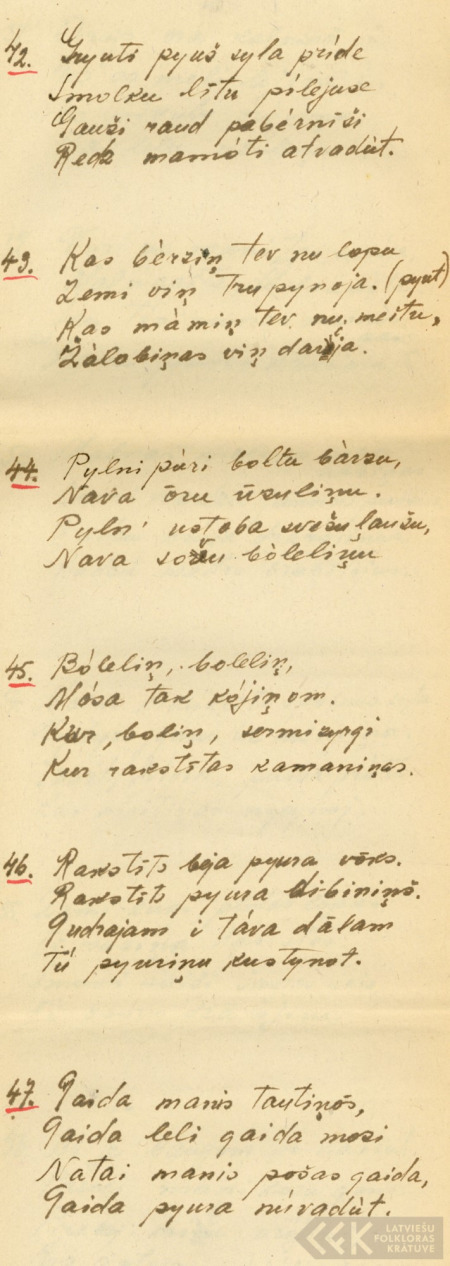 42. Gryuti pyuš syla prīde
Smolku lītu pīlejuse
Gauži raud pabérniši
Redz mamóti atvadùt.
43. Kas bèrziņ tev nu lopu
Zemi viņ trupynoja. (pyut)
Kas mámiņ tev nu meitu,
Žàlobiņas viņ darija.
44. Pylni pùri boltu bàrzu,
Nava ōru ūzuliņu.
Pyln' ustoba svešu ļaužu,
Nava sovu bòleliņu
45. Bóleliņ, boleliņ,
Mósa tak kójiņom.
Kur, boliņ, sermi zyrgi
Kur rakstītas kamaniņas.
46. Rakstīts beja pyura vōks.
Rakstīts pyura dibiniņš.
Gudrajam i táva dālam
Tū pyuriņu kustynot.
47. Gaida manis tautiņōs,
Gaida leli gaida mozi
Natai manis pošas gaida,
Gaida pyura nūvadùt.
LATVIEŠU
FOLKLORAS
KRĀTUVE